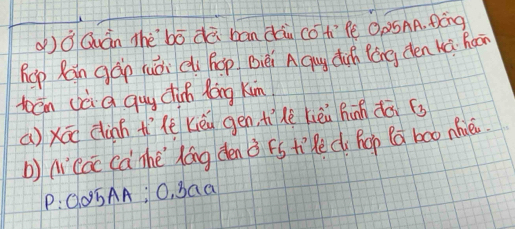 2) Ở Quần thể bố đời ban đầu có tỉ lệ 0,25AA. Đồng
hợp lặn gấp rưỡi dị hợp. Biết A quy định lông đen hoàn
toàn với a quy định lông Kim.
a) Xác định tỉ lệ kiểu gen, tỉ lệ kiểu hình đời F3
b) Ncác cá thể lông đen ở F5 tỉ lệ dị hợp là bao nhiêu.
P: 0,25AA ; 0,3aa